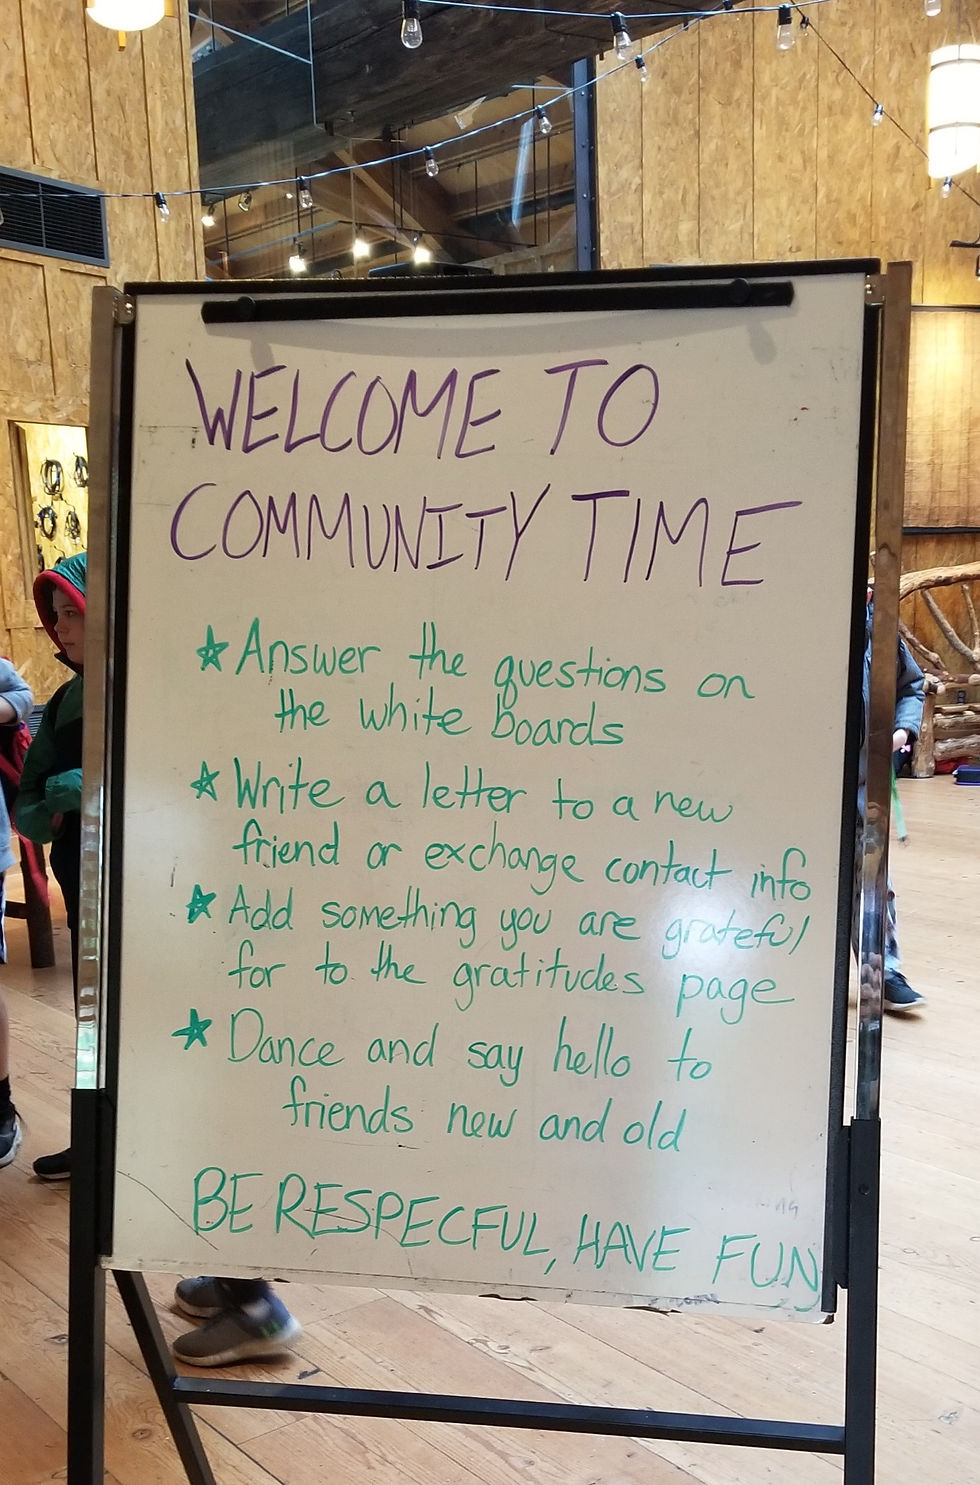 WELCOME TO
COMMUNITY TIME
★ Answer the questions on
the white boards
★ Write a letter to a new
friend or exchange contact info
★ Add something you are grateful
for to the gratitudes page
★ Dance and say hello to
friends new and old
BE RESPECFUL, HAVE FUN